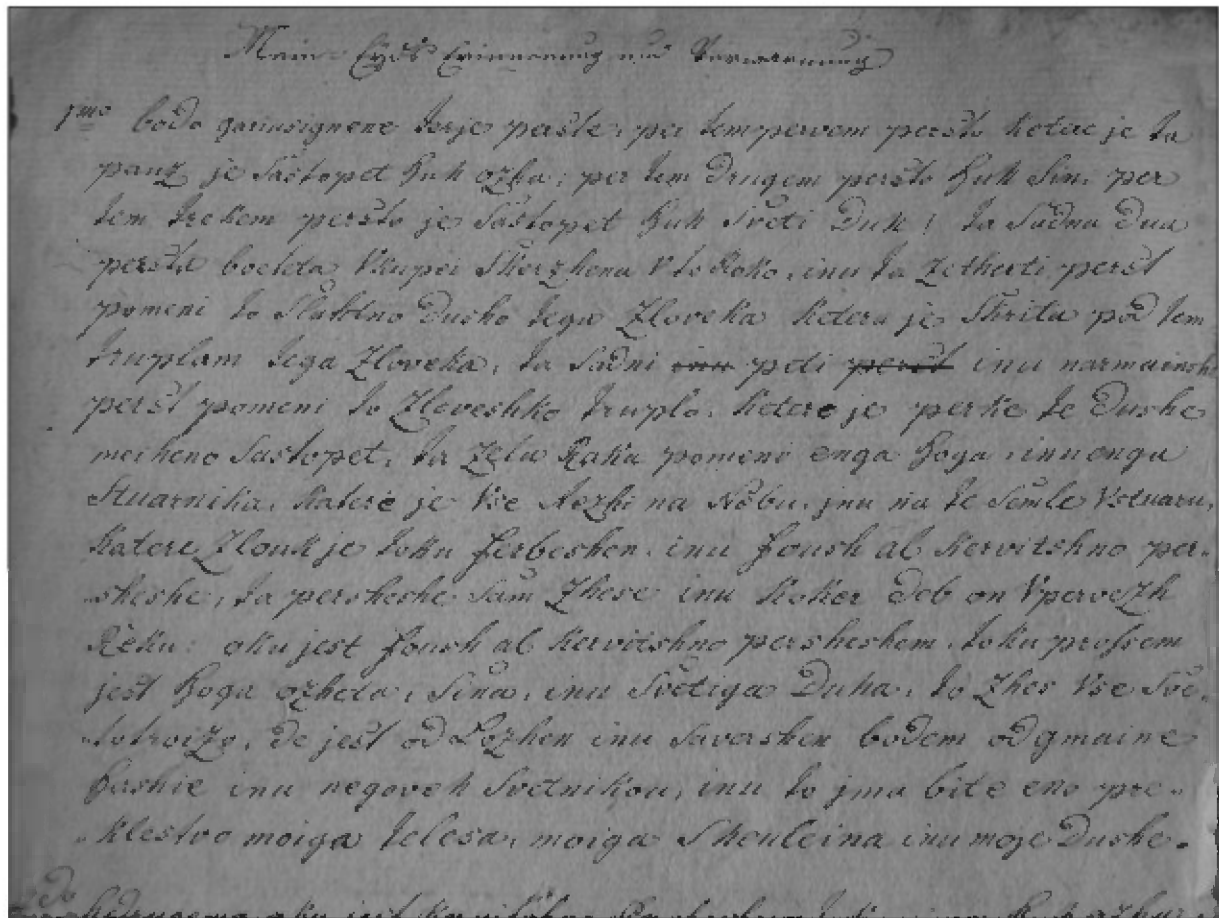 Main=Eyds Erinnerung und Verwarnung
1mo bodo gariusignene terje peršte, per tem pervem peršto kater je ta
pauz je sastopet Buh ozha; per tem drugem peršto Buh Sin, per
tem trekem peršto je sastopet Buh Sveti Duh! ta sadna dua
peršta bodeta vkupei skerzhena v to Roko, inu ta zetherti peršt
pomeni to slushno dusho tega Zloveka katera je skrita pod tem
truplam tega Zloveka, ta sadni inu peti peršt inu narmainshe
peršt pomeni to Zloveshko truplo, katero je perke te dushe
meiheno sastopet, ta zela Raka pomeni enga Boga, inu enga
Stuarnika, kateré je vse rezhi na Nebu, jnu na te semle vstuaru,
katere Zlouk je toku ferbeshen, inu foush al kervitshno per-
sheshe, ta persheshe sam zhese inu koker deb on vpervezh
Rěku: aku jest foush al kervitshno persheshem, toku prossem
jest Boga ozheta, Sina, inu Svetiga Duha, to zhes vse Sve-
totroizo, de jest od Lozhen inu savershen bodem od gmaine
Boshie inu negoveh Svetnikou, inu to jma bite eno pre-
klestvo moiga telesa, moiga Shouleina inu moje Dushe.